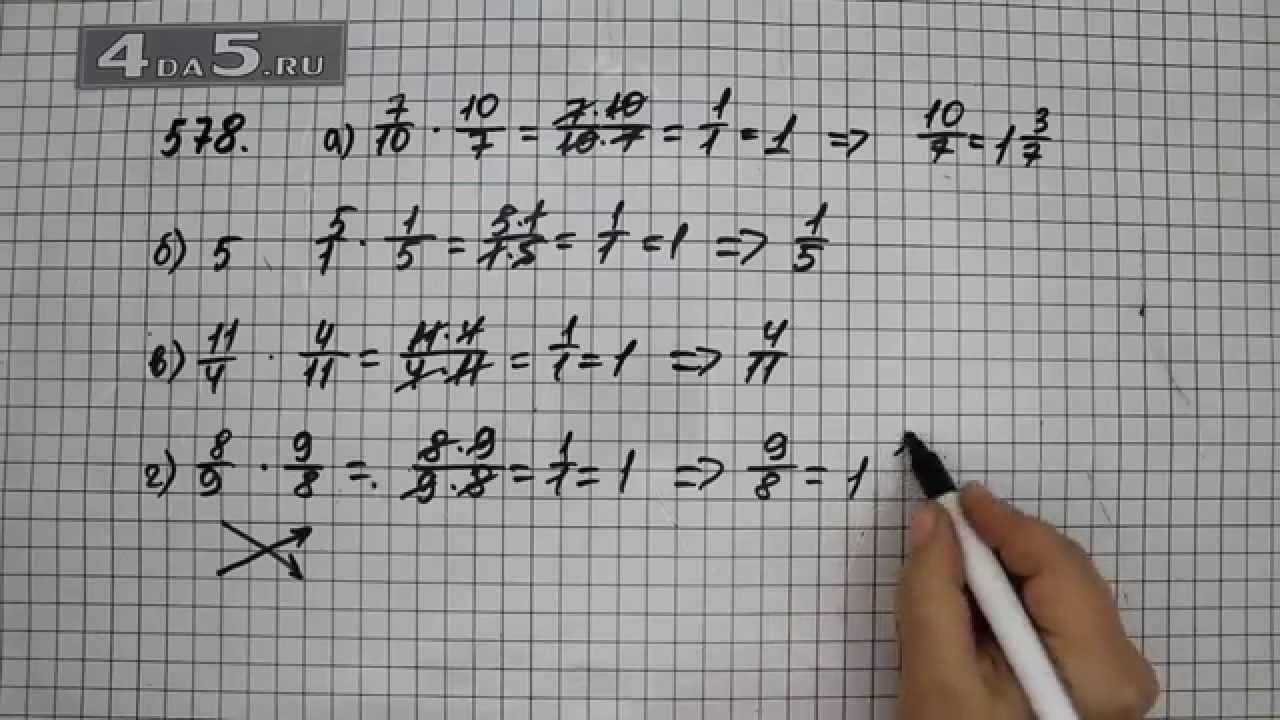 4DA5.RU
578. а) 7/10 · 10/7 = 7·10/10·7 = 1/1 = 1 => 10/7 = 1 3/7
б) 5 5/1 · 1/5 = 5·1/1·5 = 1/1 = 1 => 1/5
в) 11/4 · 4/11 = 11·4/4·11 = 1/1 = 1 => 4/11
г) 8/9 · 9/8 = 8·9/9·8 = 1/1 = 1 => 9/8 = 1